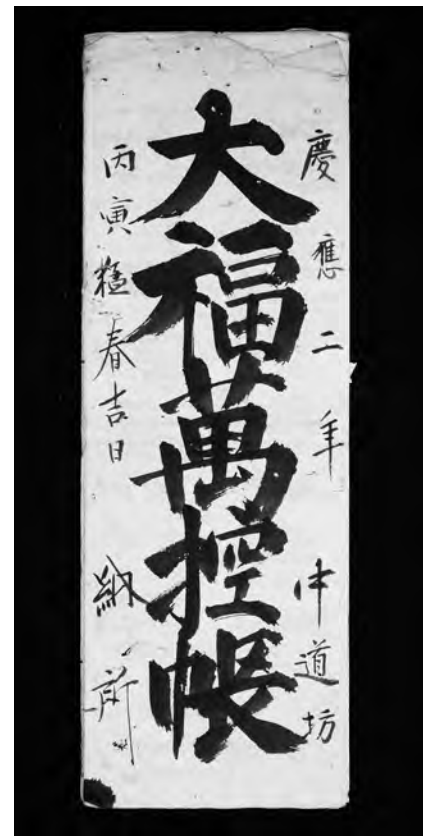 慶應二年 中道坊
大福萬控帳
丙寅孟春吉日 納所